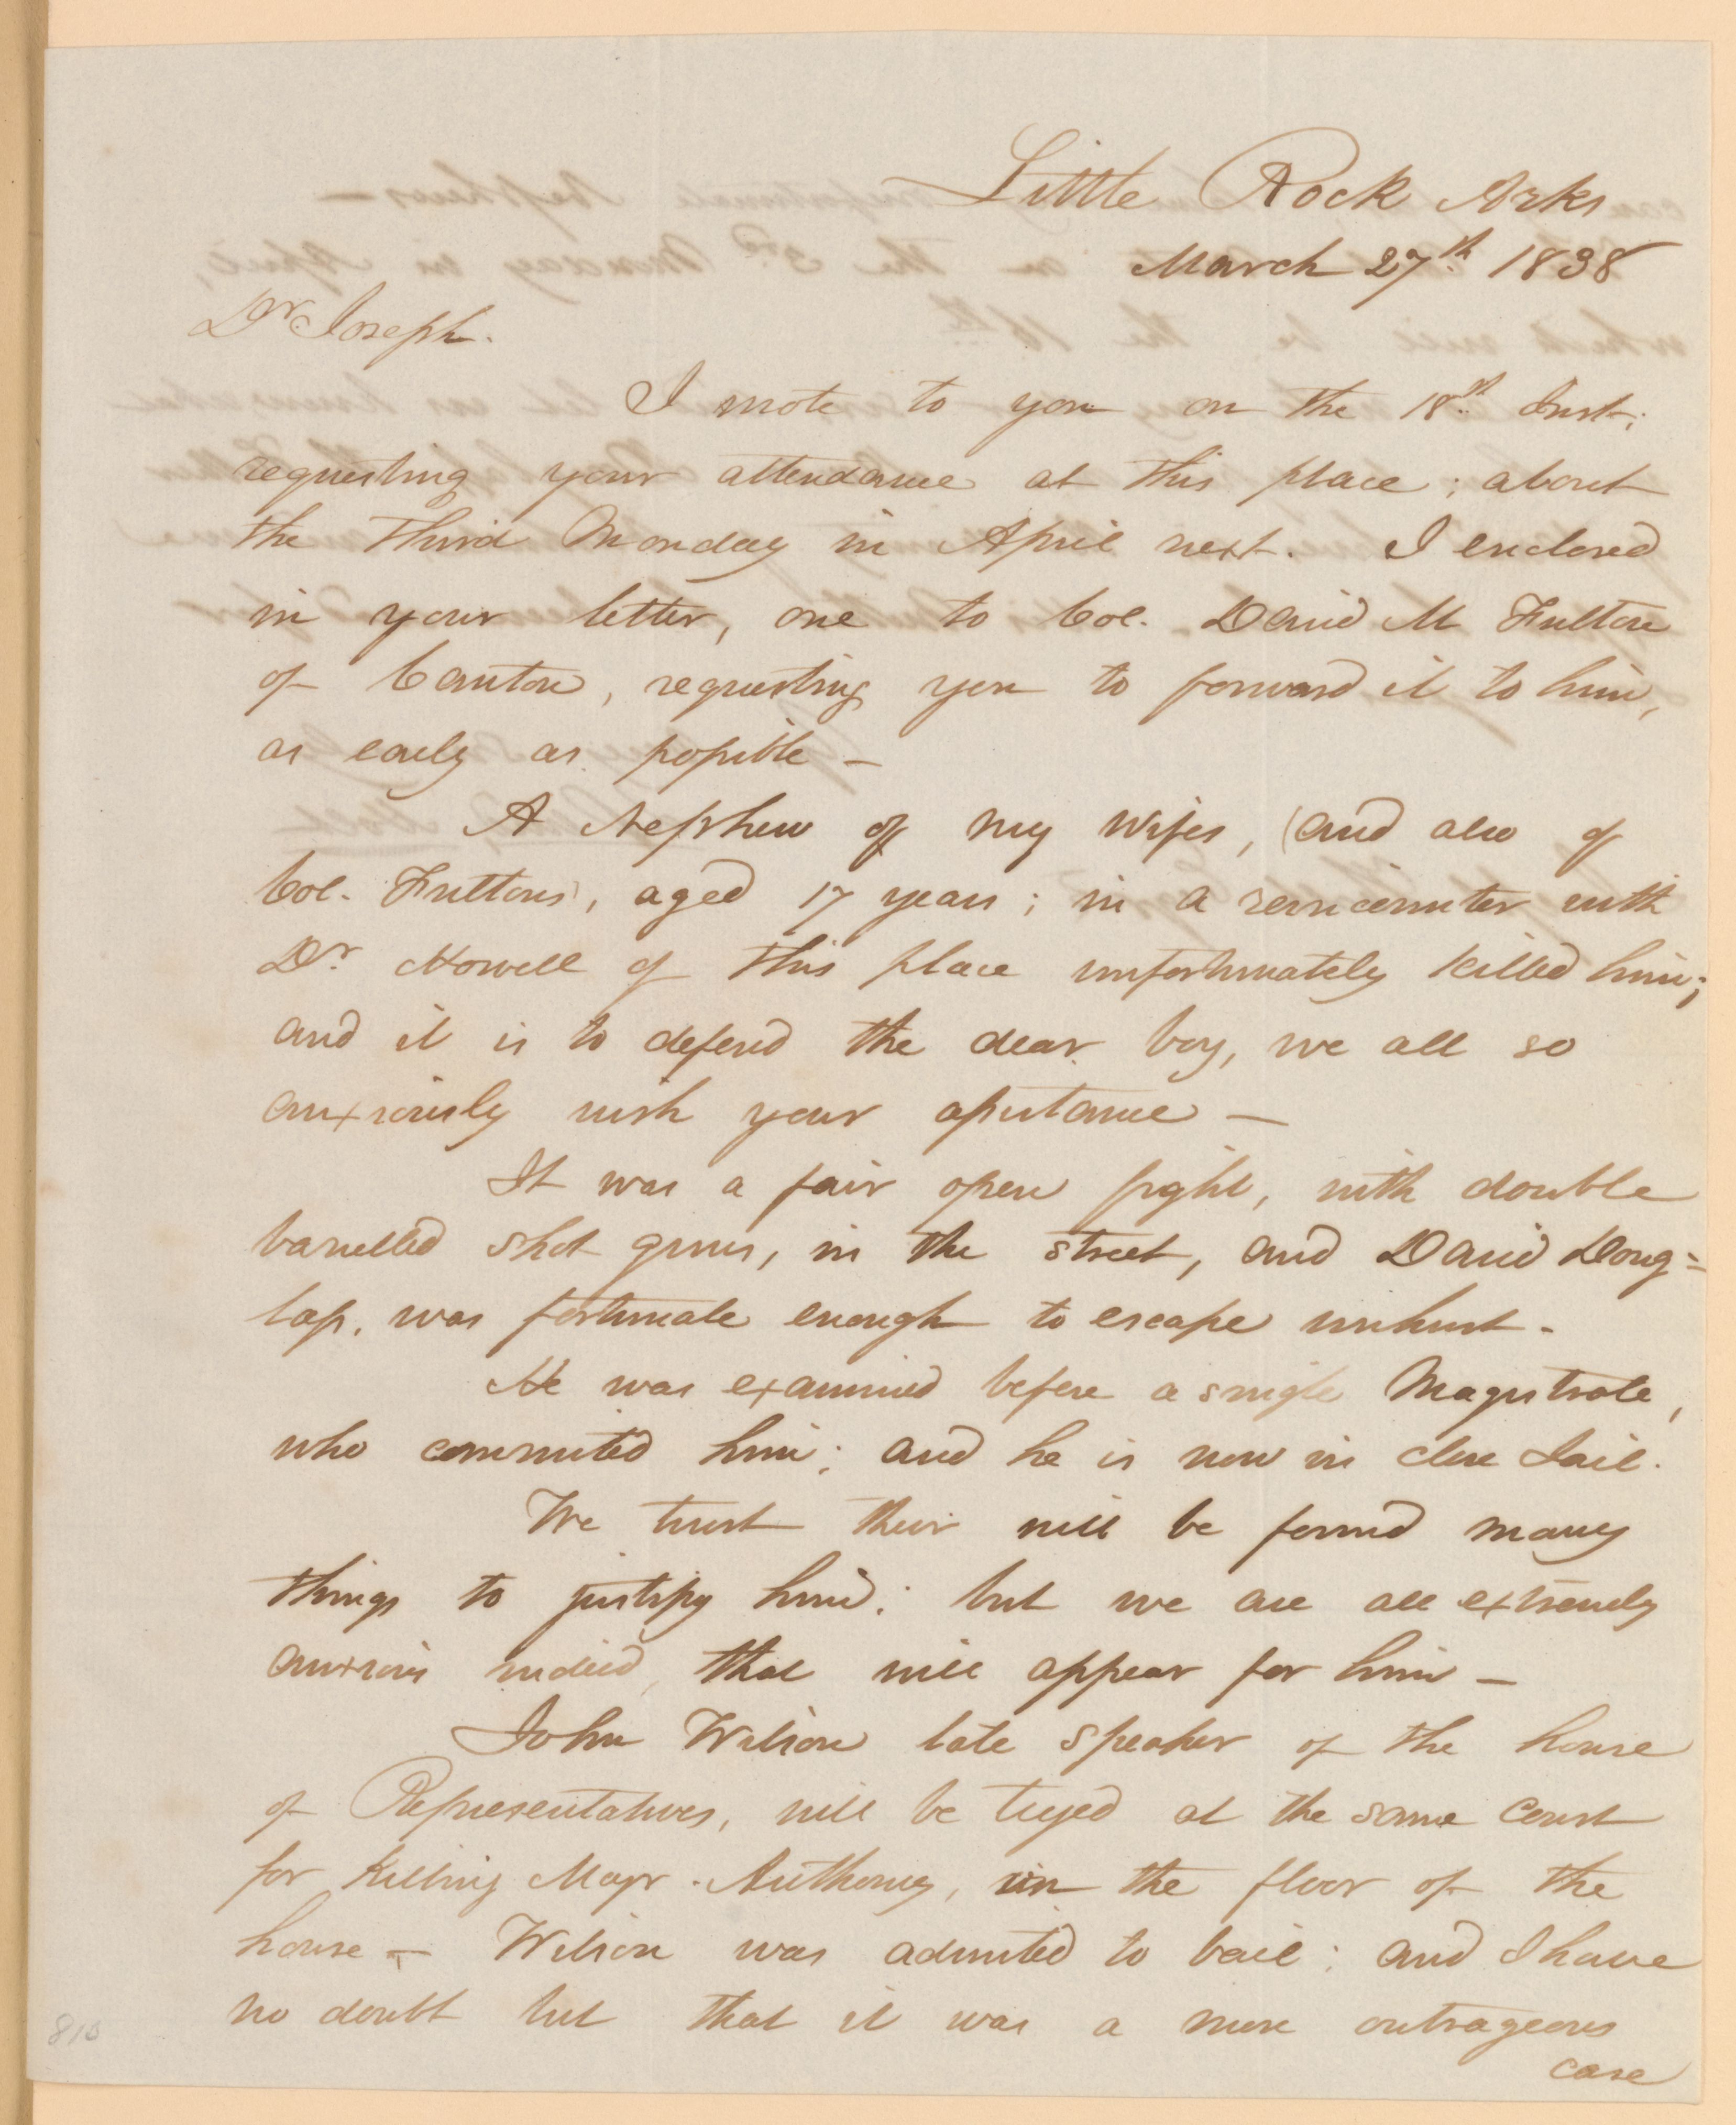 Little Rock Arks
March 27th 1838
Dr Joseph.
I wrote to you on the 18th Inst;
requesting your attendance at this place; about
the third Monday in April next. I enclosed
in your letter, one to Col. David M Fulton
of Canton, requesting you to forward it to him,
as early as possible —
A Nephew of my wifes, (and also of
Col. Fultons), aged 17 years; in a rencounter with
Dr. Howell of this place unfortunately killed him;
and it is to defend the dear boy, we all so
anxiously wish your assistance —
It was a fair open fight, with double
barrelled shot guns, in the street, and David Doug=
lass, was fortunate enough to escape unhurt.
He was examined before a single Magistrate,
who committed him; and he is now in close Jail.
We trust their will be found many
things to justify him; but we are all extremely
anxious indeed, that will appear for him —
John Wilson late speaker of the house
of Representatives, will be tryed at the same Court
for killing Majr. Anthony, in the floor of the
house — Wilson was admited to bail; and I have
no doubt but that it was a more outrageous
case
810